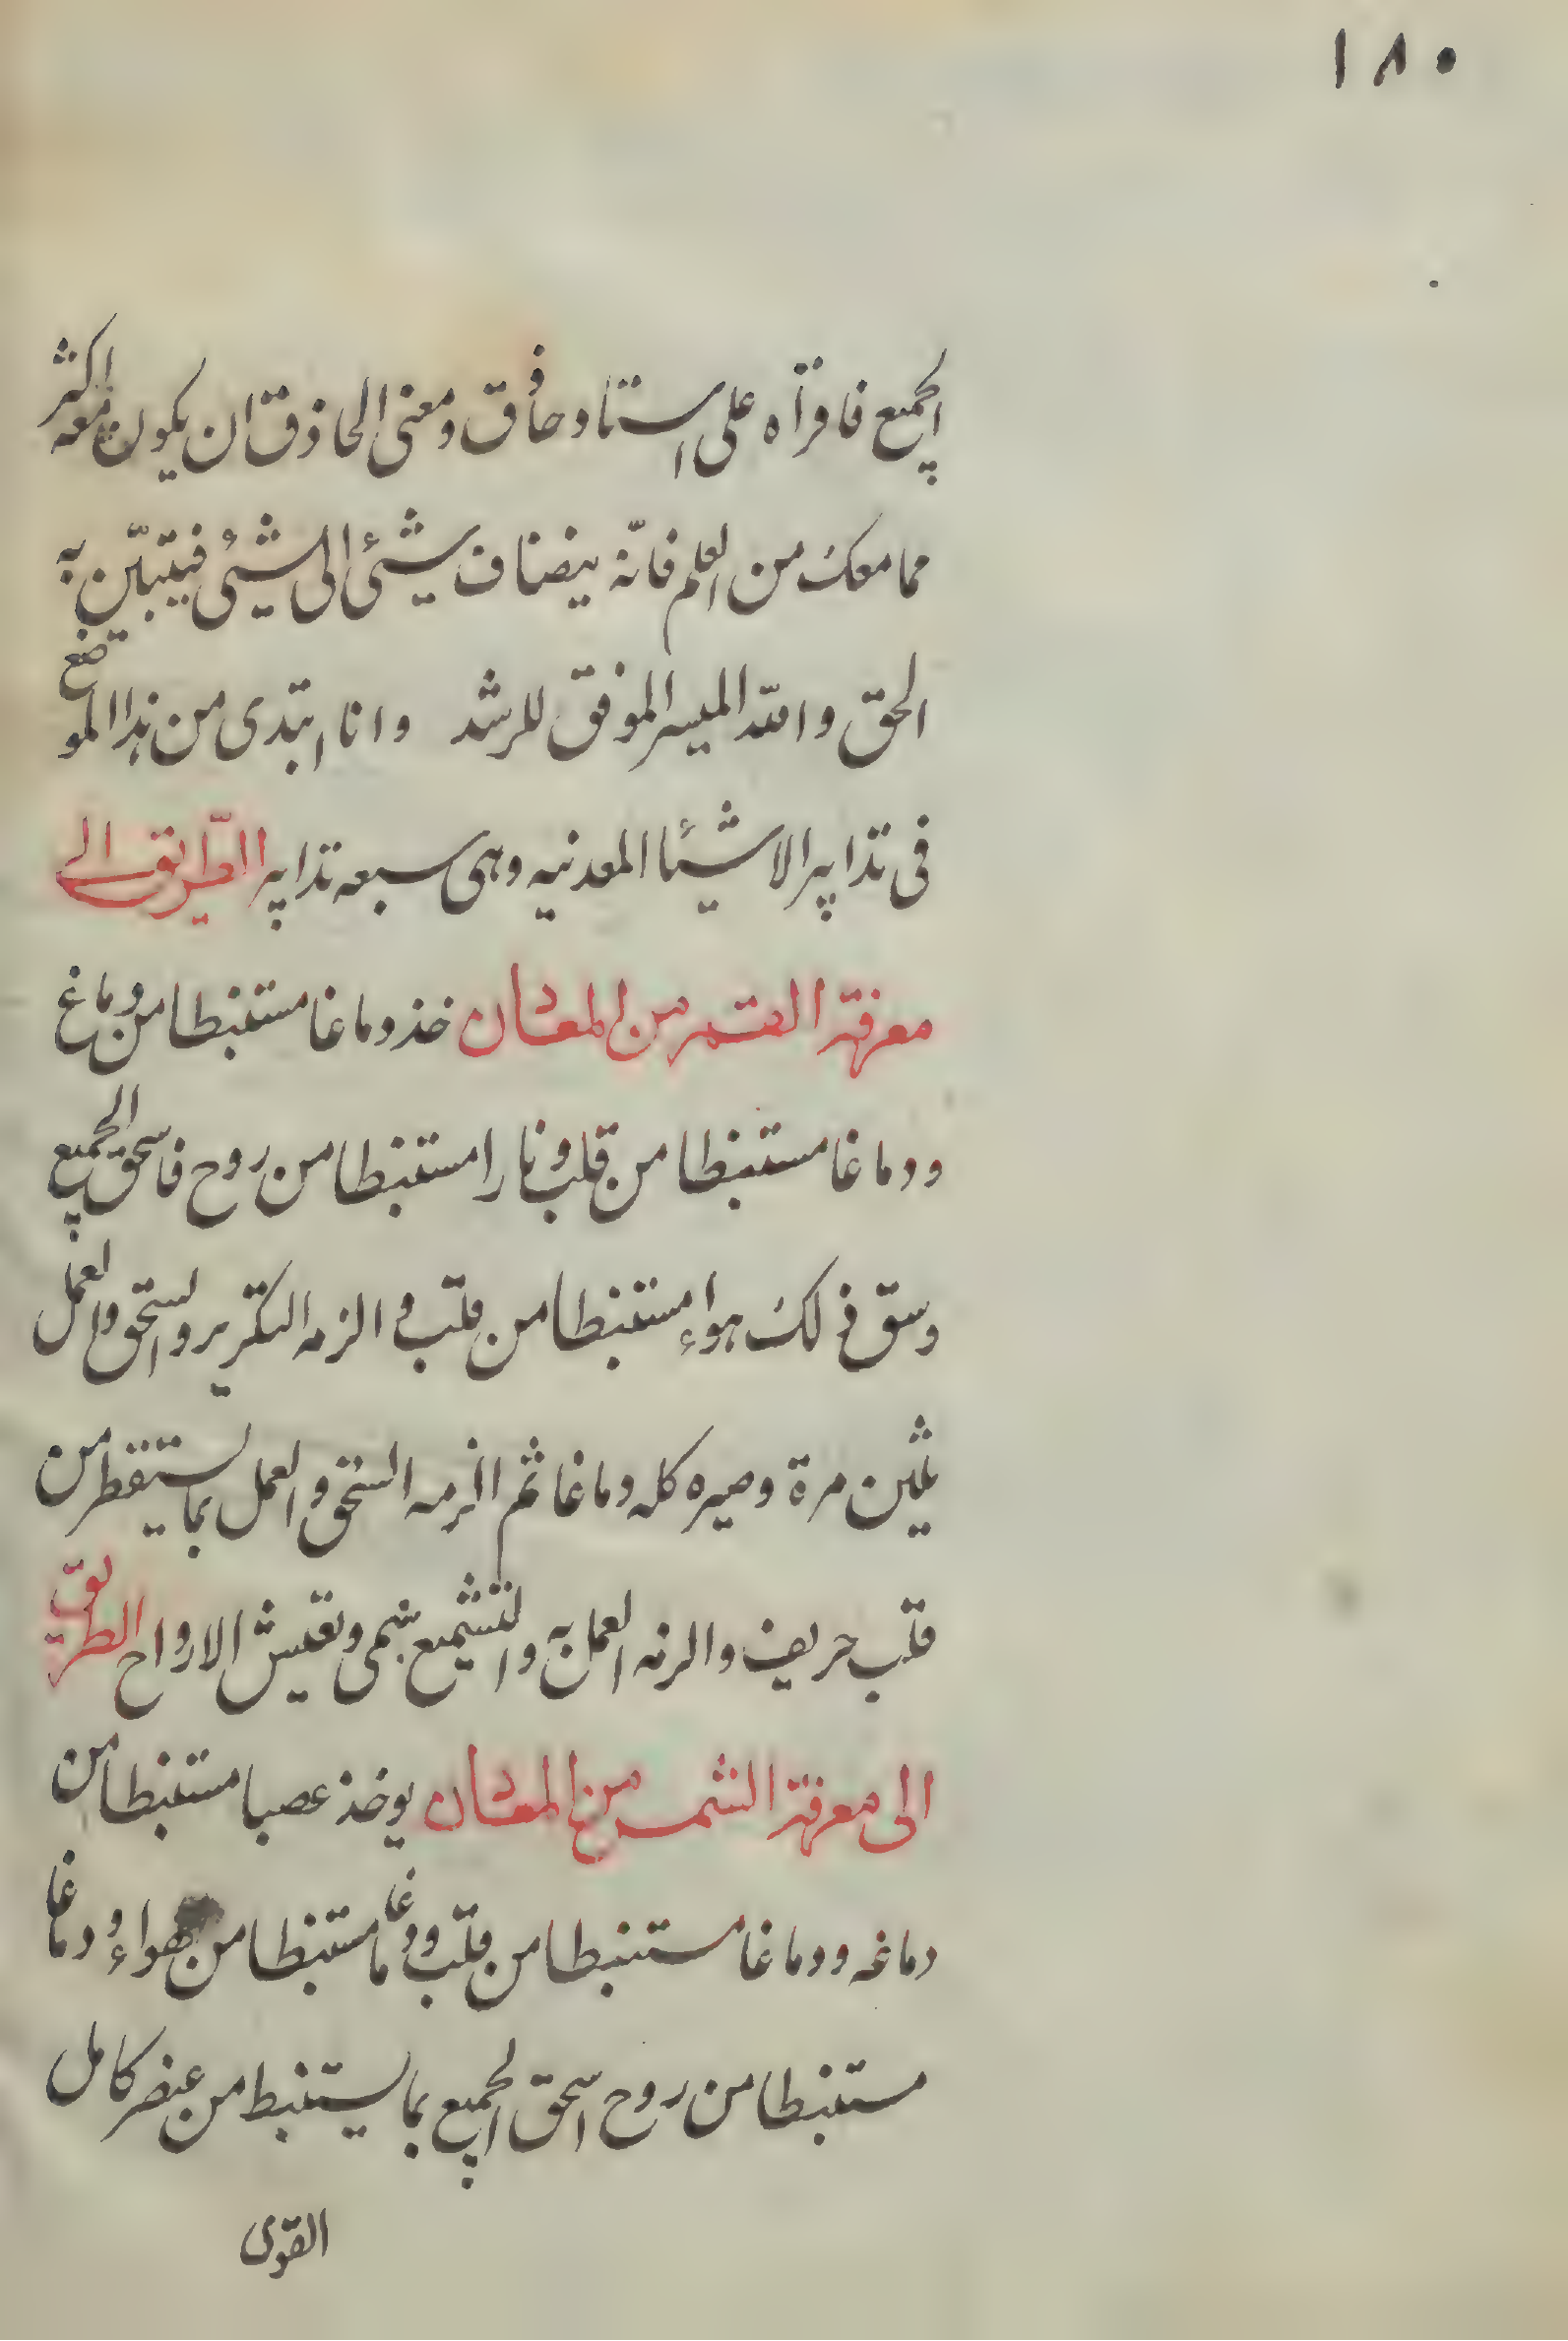 ١٨٠
الجميع فاقرآه على استاد حاذق ومعنى الحاذق ان يكون معه اكثر
مما معك من العلم فانّه ينضاف شيئ الى الشيئ فيتبيّن به
الحق والله الميسر الموفق للرشد وانا ابتدى من هذا الموضع
فى تدابير الاشيئا المعدنيه وهى سبعه تدابير الطّريق الى
معرفة القمر من المعادن خذ دماغا مستنبطا من دماغ
ودماغا مستنبطا من قلب ونارا مستنبطا من روح فاسحق الجميع
وسق ذلك هواء مستنبطا من قلب والزمه التكرير والسحق والعمل
ثلثين مرة وصيره كله دماغا ثم الزمه السحق والعمل بما يستقطر من
قلب حريف والزمه العمل به والتشميع ينمى ويعيش الارواح الطريق
الى معرفة الشمس من المعادن يوخذ عصبا مستنبطا من
دماغه ودماغا مستنبطا من قلب ودماغا مستنبطا من هواء ودماغا
مستنبطا من روح اسحق الجميع بما يستنبط من عنصر كامل
القوى